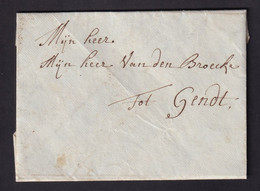 Mijn heer
Mijn heer Van den Broecke
Tot Gendt